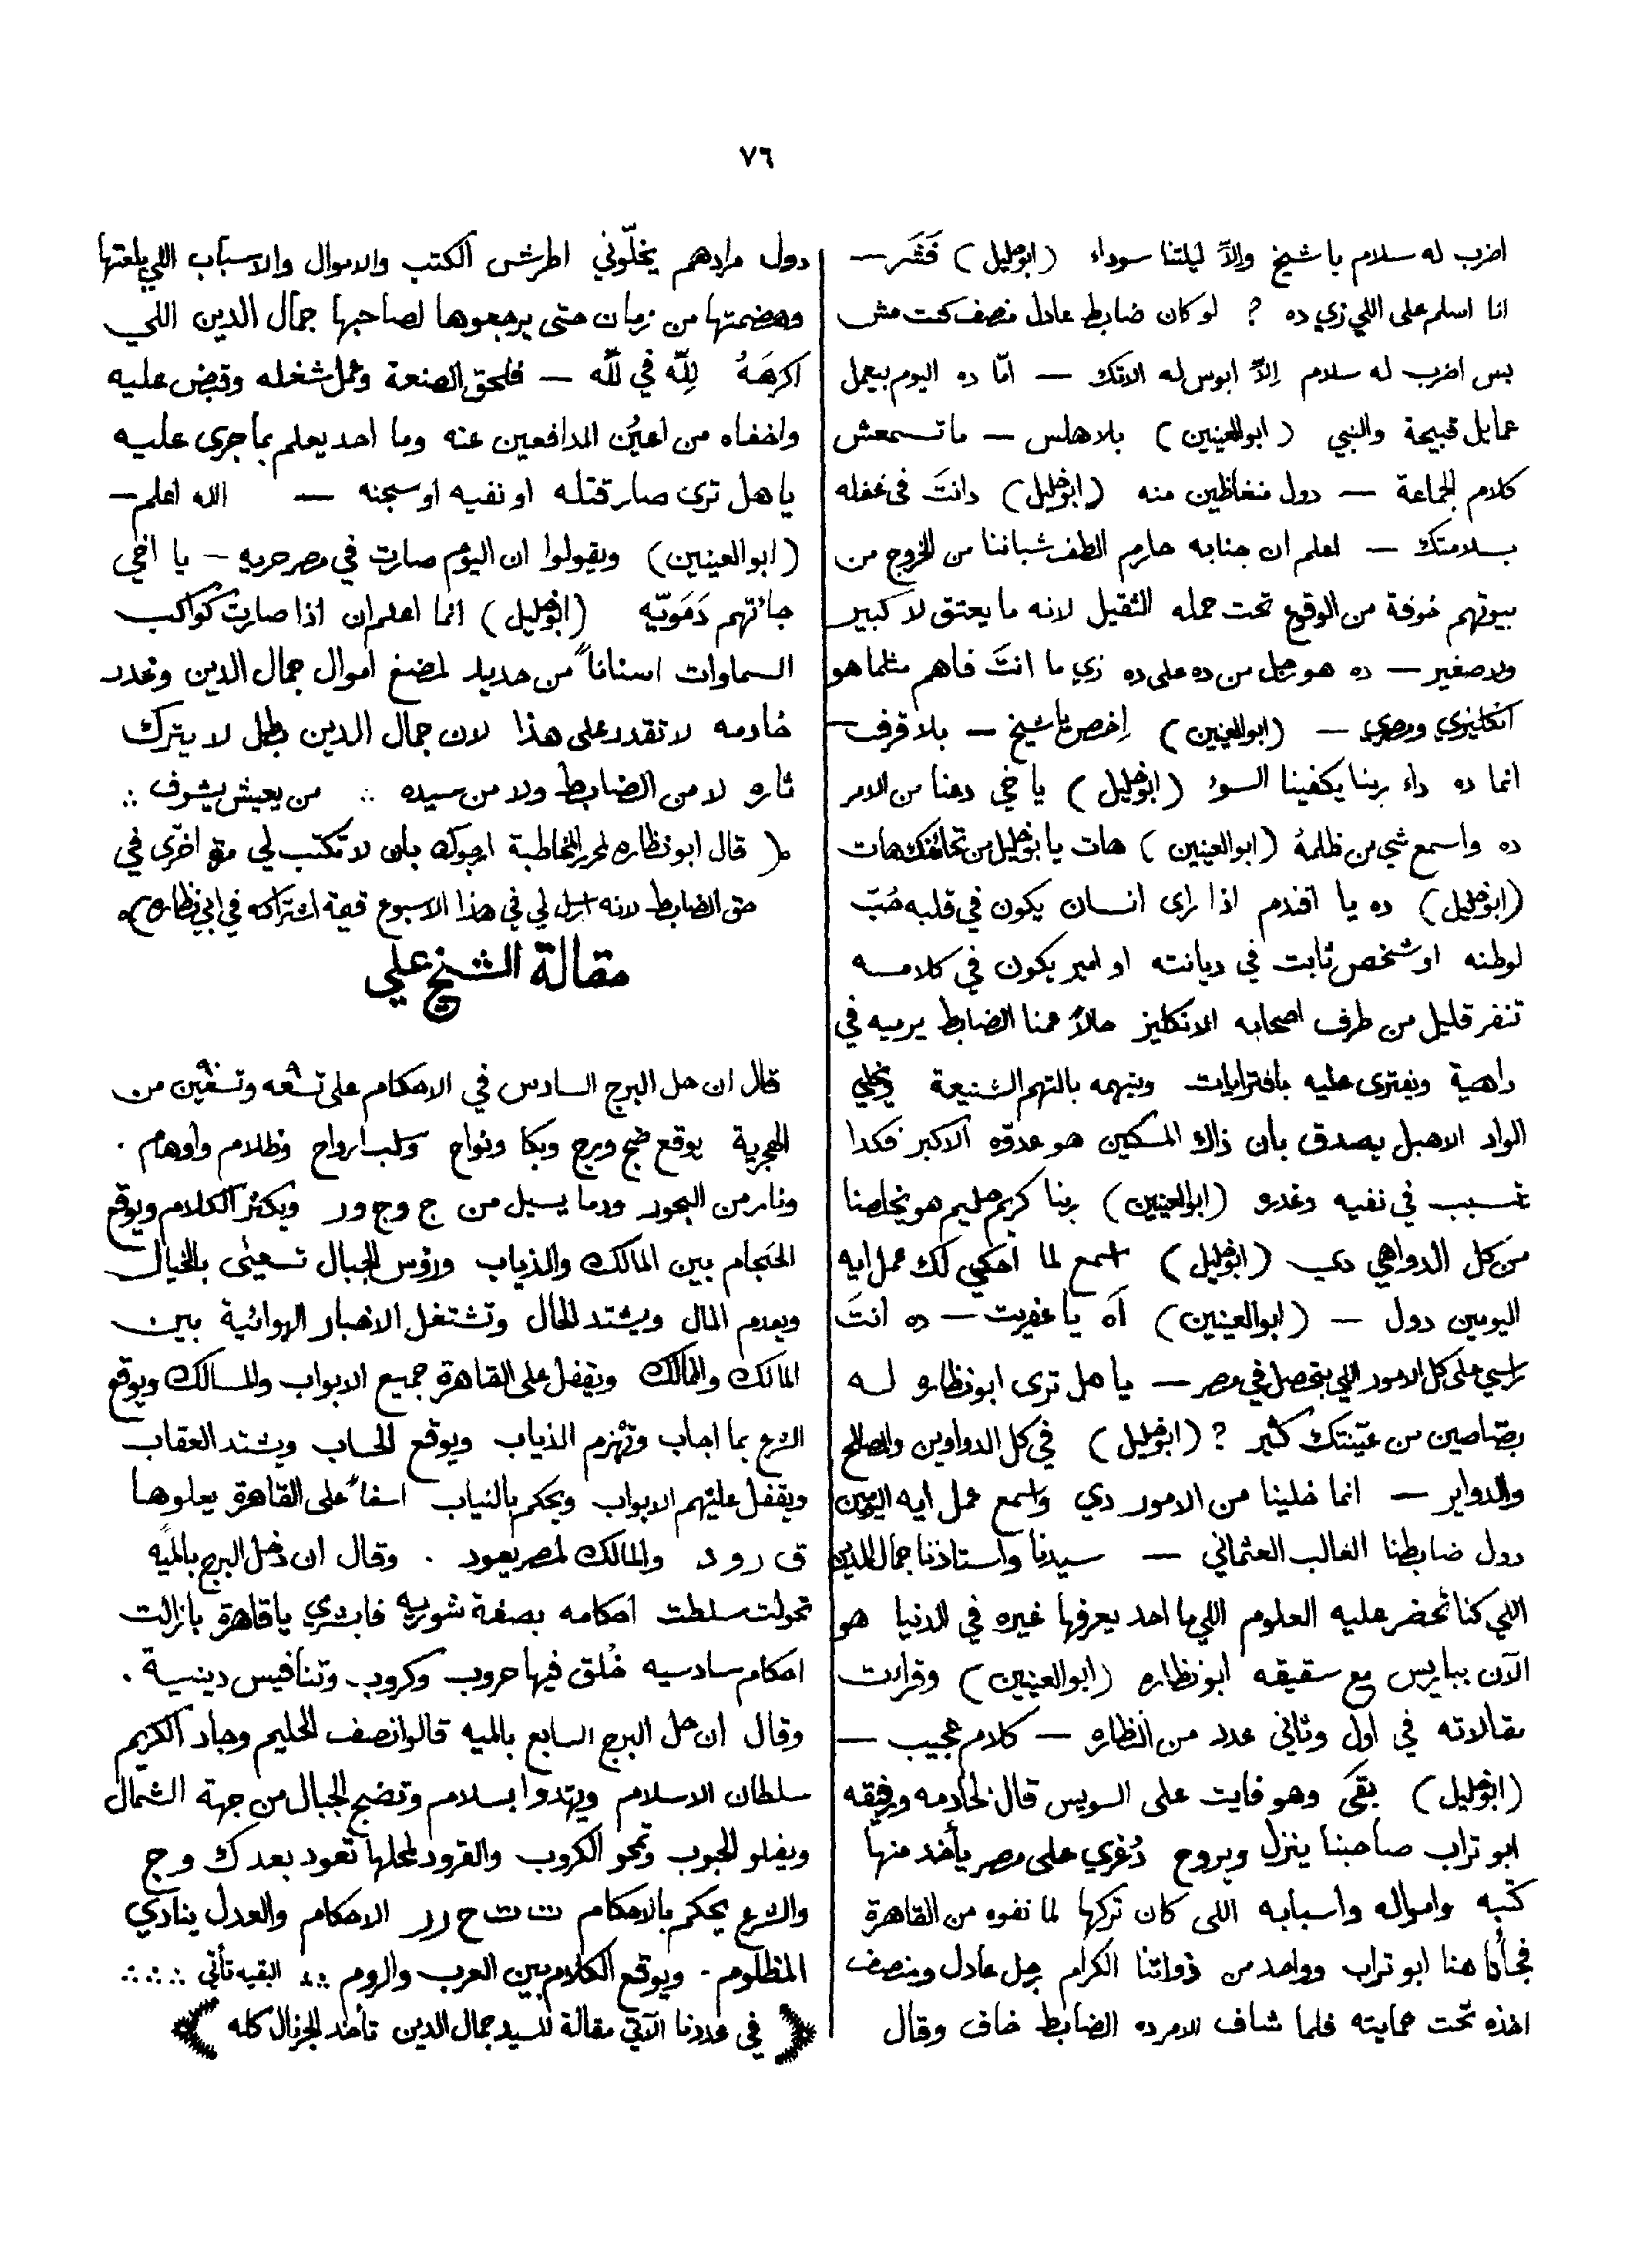 ٧٦
اضرب له سلام يا شيخ والاّ ليلتنا سوداء (ابوخليل) فَشَر —
انا اسلم على اللي زي ده ؟ لو كان ضابط عادل منصف كنت مش
بس اضرب له سلام إلاّ ابوس له الاتك — امّا ده اليوم بيعمل
عمايل قبيحة والنبي (ابوالعينين) بلا هلس — ما تسمعش
كلام الجماعة — دول منغاظين منه (ابوخليل) دانتَ فى غفله
بسلامتك — اعلم ان جنابه حارم الطف شباننا من الخروج من
بيوتهم خوفة من الوقوع تحت حمله الثقيل لانه ما يعتق لا كبير
ولا صغير — ده هو رجل من ده على ده زي ما انتَ فاهم مثلما هو
انكليزي ومصري — (ابوالعينين) إخص يا شيخ — بلا قرف —
انما ده داء ربنا يكفينا السوء (ابوخليل) يا خي دعنا من الامر
ده واسمع شي من ظلمهُ (ابوالعينين) هات يا بوخليل من تحائفك هات
(ابوخليل) ده يا افندم اذا راى انسان يكون في قلبه حُبّ
لوطنه او شخص ثابت في ديانته او امير يكون في كلامه
تنفر قليل من طرف اصحابه الانكليز حالاً عمنا الضابط يرميه في
داهية ويفترى عليه بافترايات ويتهمه بالتهم الشنيعة ويخلي
الواد الاهبل يصدق بأن ذاك المسكين هو عدوّه الاكبر فكدا
تسبب في نفيه وغدرو (ابوالعينين) ربنا كريم حليم هو يخلصنا
من كل الدواهي دي (ابوخليل) اسمع لما احكي لك عمل ايه
اليومين دول — (ابوالعينين) آه يا عفريت — ده انتَ
راسي على كل الامور اللي بتحصل في مصر — يا هل ترى ابونظاره له
بصّاصين من عيّنتك كثير ؟ (ابوخليل) في كل الدواوين والمصالح
والدواير — انما خلينا من الامور دي واسمع عمل ايه اليومين
دول ضابطنا الغالب العثماني — سيدنا واستاذنا جمال الدين
اللي كنا نحضر عليه العلوم اللي ما احد يعرفها غيره في الدنيا هو
الآن بباريس مع سقيقه ابونظاره (ابوالعينين) وقرات
مقالاته في اول وثاني عدد من النظاره — كلام عجيب —
(ابوخليل) بقى وهو فايت على السويس قال لخادمه ورفيقه
ابو تراب صاحبنا ينزل ويروح دُغري على مصر يأخد منها
كتبه وامواله واسبابه اللى كان تركها لما نفوه من القاهرة
فجأنا هنا ابو تراب وواحد من ذواتنا الكرام رجل عادل ومنصف
اخذه تحت حمايته فلما شاف الامر ده الضابط خاف وقال
دول مرادهم يخلّوني اطرش الكتب والاموال والاسباب اللي بلعتها
وهضمتها من زمان حتى يرجعوها لصاحبها جمال الدين اللي
اكرههُ لِلّه في لله — فلحق الصنعة وعمل شغله وقبض عليه
واخفاه من اعيُن المدافعين عنه وما احد يعلم بما جرى عليه
يا هل ترى صار قتله او نفيه او سجنه — الله اعلم —
(ابوالعينين) ويقولوا ان اليوم صارت في مصر حريه — يا اخي
جائتهم دَمَويّه (ابوخليل) انما اعلم ان اذا صارت كواكب
السماوات اسناناً من حديد لمضغ اموال جمال الدين وغدر
خادمه لا تقدر على هذا لان جمال الدين بطل لا يترك
ثاره لا من الضابط ولا من سيده ∴ من يعيش يشوف ∴
( قال ابونظاره لمحرر المخاطبة ارجوك بان لا تكتب لي مرة اخرى في
حق الضابط لانه ارسل لي في هذا الاسبوع قيمة اشتراكه في ابي نظاره )
مقالة الشيخ علي
قال ان حل البرج السادس في الاحكام على تسعه وتسعين من
الهجرية يوقع ضج ورج وبكا ونواح وسلب ارواح وظلام واوهام .
ونار من البحور ودما يسيل من ج وج ور ويكثر الكلام ويوقع
الخجام بين المالك والذياب ورؤس الجبال تسعى بالخيال
ويعدم المال ويشتد الحال وتشتغل الاخبار الهوائية بين
المالك والممالك ويقفل على القاهرة جميع الابواب والمسالك ويوقع
الشرع بما اجاب وتهزم الذياب ويوقع الحساب ويشتد العقاب
ويقفل عليهم الابواب ويحكم بالنياب اسفاً على القاهرة يعلوها
ق رود والمالك لمصر يعود . وقال ان دخل البرج بالميه
تحولت سلطت احكامه بصفة شوريه فابشري يا قاهرة بانزالت
احكام سادسيه خُلق فيها حروب وكروب وتنافيس دينية .
وقال ان حل البرج السابع بالميه قالوا نصف الحليم وجاد الكريم
سلطان الاسلام ويهتدوا بسلام وتضبح الجبال من جهة الشمال
ويغلو الحبوب وتمحو الكروب والقرود لمحلها تعود بعد ك وج
والشرع يحكم بالاحكام ت ت ح رر الاحكام والعدل ينادي
المظلوم . ويوقع الكلام بين العرب والروم ∴ البقيه تأتي ∴ ∴
( في عددنا الآتي مقالة للسيد جمال الدين تأخد الجرنال كله )